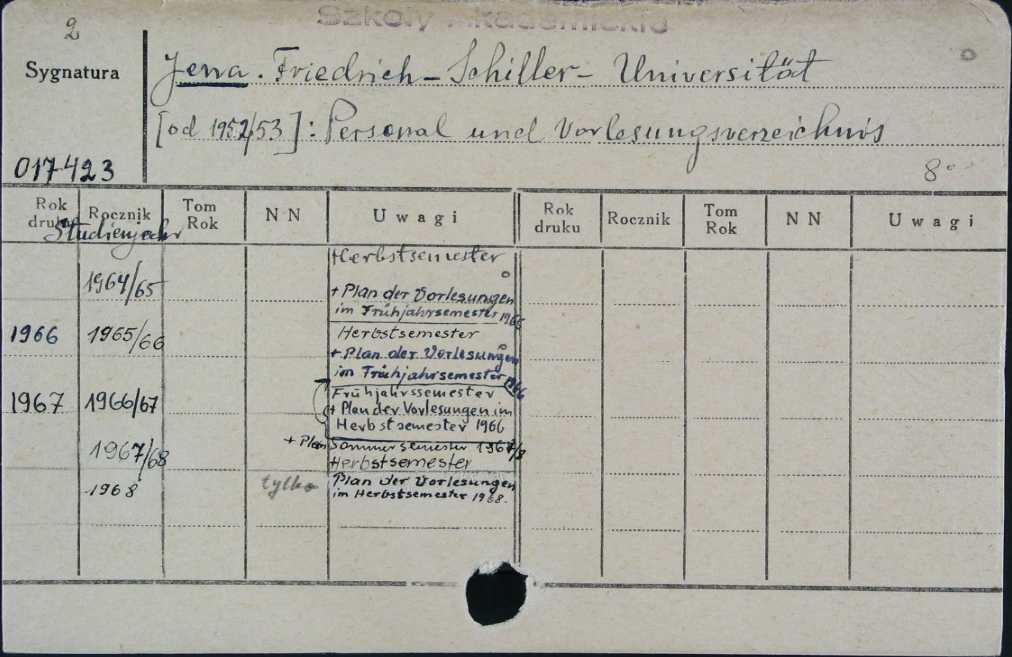 Szkoły Akademickie
2
Sygnatura
Jena. Friedrich-Schiller-Universität
[od 1952/53]: Personal und Vorlesungsverzeichnis
017423
8°
Rok druku Rocznik Tom Rok NN Uwagi Rok druku Rocznik Tom Rok NN Uwagi
Studienjahr
Herbstsemester
1964/65
+ Plan der Vorlesungen
im Frühjahrsemester 1966
1966 1965/66 Herbstsemester
+ Plan der Vorlesungen
im Frühjahrsemester 1966
1967 1966/67 Frühjahrssemester
+ Plan der Vorlesungen im
Herbstsemester 1966
1967/68 + Plan Sommersemester 1967/8
Herbstsemester
1968 tylko Plan der Vorlesungen
im Herbstsemester 1968.